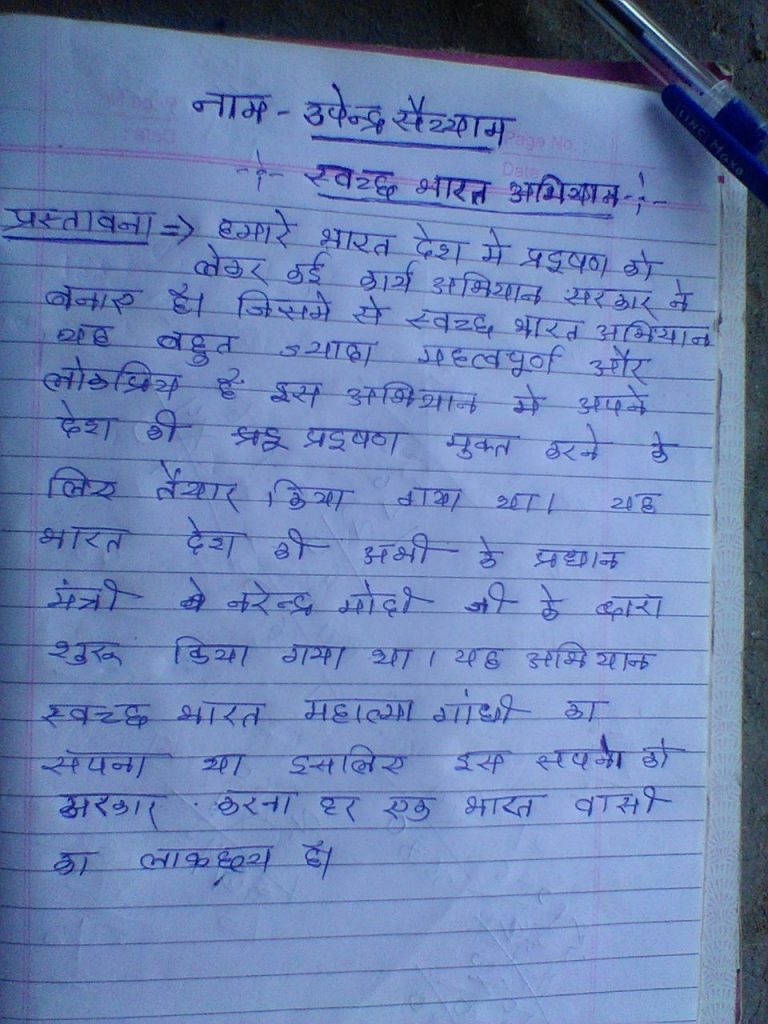 नाम - उपेन्द्र सैय्याम
Page No.:
Date
-:- स्वच्छ भारत अभियान -:-
प्रस्तावना => हमारे भारत देश मे प्रदुषण को
लेकर कई कार्य अभियान सरकार ने
बनाए है। जिसमे से स्वच्छ भारत अभियान
यह बहुत ज्यादा महत्वपूर्ण और
लोकप्रिय है इस अभियान मे अपने
देश की प्रदुषण मुक्त करने के
लिए तैयार किया गाया था। यह
भारत देश की अभी के प्रधान
मंत्री नरेन्द्र मोदी जी के द्वारा
शुरू किया गया था। यह अभियान
स्वच्छ भारत महात्मा गांधी का
सपना था इसलिए इस सपने को
सरकार करना हर एक भारत वासी
का है।